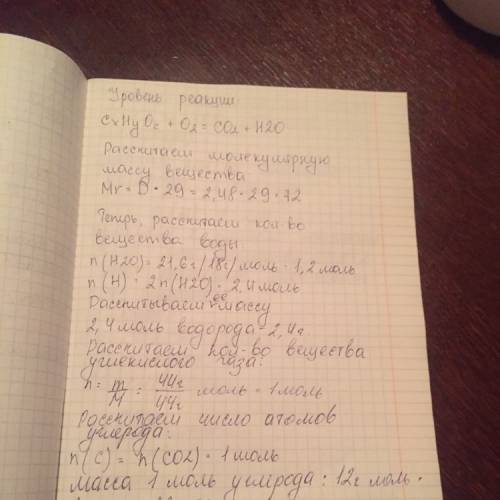 Уровень реакции
CxHyOz + O2 = CO2 + H2O
Рассчитаем молекулярную
массу вещества
Mr = D · 29 = 2,48 · 29 = 72
Теперь, рассчитаем кол-во
вещества воды
n(H2O) = 21,6г/18г/моль = 1,2 моль
n(H) = 2n(H2O) = 2,4 моль
Рассчитываем её массу
2,4 моль водорода = 2,4г
Рассчитаем кол-во вещества
углекислого газа:
n = m/M = 44г/44г моль = 1 моль
Рассчитаем число атомов
углерода:
n(C) = n(CO2) = 1 моль
масса 1 моль углерода: 12г моль ·